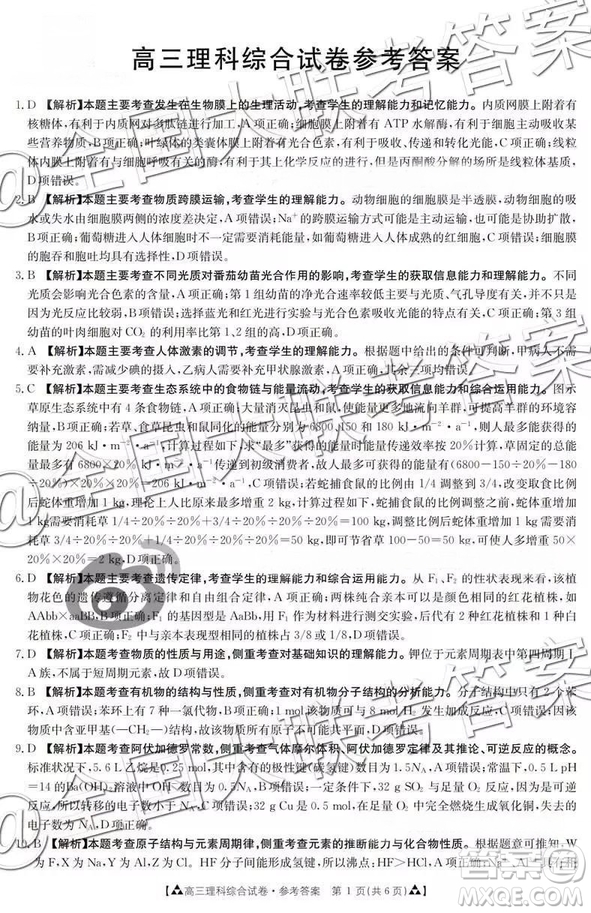 高三理科综合试卷参考答案
1. D 【解析】本题主要考查发生在生物膜上的生理活动,考查学生的理解能力和记忆能力。内质网膜上附着有
核糖体,有利于内质网对多肽链进行加工,A项正确;细胞膜上附着有ATP水解酶,有利于细胞主动吸收某
些营养物质,B项正确;叶绿体的类囊体膜上分布着光合色素,有利于吸收、传递和转化光能,C项正确;线粒
体内膜上附着有与细胞呼吸有关的酶,有利于其上化学反应的进行,但是丙酮酸分解的场所是线粒体基质,
D项错误。
2. B 【解析】本题主要考查物质跨膜运输,考查学生的理解能力。动物细胞的细胞膜是半透膜,动物细胞的吸
水或失水由细胞膜两侧的浓度差决定,A项错误;Na⁺的跨膜运输方式可能是主动运输,也可能是协助扩散,
B项正确;如葡萄糖进入人体不同细胞时不一定需要消耗能量,如葡萄糖进入人体成熟红细胞,C项错误;细胞膜
的胞吞和胞吐均具有选择性,D项错误。
3. B 【解析】本题主要考查不同光质对番茄幼苗光合作用的影响,考查学生的获取信息能力和理解能力。不同
光质会影响光合色素的含量,A项正确;第1组幼苗的净光合速率较低可能主要与光质、气孔导度有关,与其
因为反应场所无关,B项错误;选用红光和蓝光进行实验与光合色素主要吸收光能的特点有关,C项正确;第3组
幼苗的叶肉细胞对CO₂的利用率比第1、2组的高,D项正确。
4. A 【解析】本题主要考查人体激素的调节,考查学生的理解能力。根据题中给出的条件可判断,甲病人不需
要补充激素,需减少碘的摄入,乙病人需要补充甲状腺激素,其余三项均错误。
5. C 【解析】本题主要考查生态系统中的食物链与能量流动,考查学生的获取信息能力和综合运用能力。图示
草原生态系统中有4条食物链,A项正确;大量消灭昆虫和鼠,使能量更多地流向羊群,可提高草原羊群的环境容
纳量,B项正确;若草、食草昆虫和鼠同化的能量分别为6800、150和180 kJ·m⁻²·a⁻¹,则人最多能获得的
能量为206 kJ·m⁻²·a⁻¹(计算过程如下,求“最多”获得的能量时能量传递效率按20%计算,草固定的总能
量最多有6800×20%传递到初级消费者,故人最多获得的能量为(6800-150÷20%-180
÷20%)×20%×20%=206),C项错误;若蛇捕食鼠的比例由1/4调整到3/4,改变取食比例
后蛇体重增加1 kg,理论上人比原来最多增重2 kg,计算过程如下,蛇捕食鼠的比例调整之前,蛇体重增加
1 kg需要消耗草1/4÷20%÷20%+3/4÷20%÷20%÷20%=100 kg,调整之后,蛇体重增加1 kg最多需
要消耗草3/4÷20%÷20%+1/4÷20%÷20%÷20%=50 kg,即可节省草100-50=50 kg,人最多增重50×
20%×20%=2 kg,D项正确。
6. D 【解析】本题主要考查遗传定律,考查学生的理解能力和综合运用能力。从F₁、F₂的性状表现来看,该植
物花色的遗传遵循分离定律和自由组合定律,A项正确;两株纯合亲本可以是表现型不同的植株,例如
AAbb×aaBB,B项正确;F₁的基因型是AaBb,用F₁作为材料进行测交实验,后代中有2种红花植株和1种白
花植株,C项正确;F₂中与亲本表现型相同的植株占3/8或1/8,D项错误。
7. D 【解析】本题考查物质的性质与用途,侧重考查对基础知识的理解能力。钾位于元素周期表中第四周期Ⅰ
A族,不属于短周期元素,故D项错误。
8. B 【解析】本题考查有机物的结构与性质,侧重考查对有机物分子结构的分析能力。分子结构中只有2个苯
环,A项错误;苯环上有7种一氯代物,B项正确;1 mol该物质可与7 mol H₂发生加成反应,C项错误;因物质
内含亚甲基(—CH₂—)结构,故所有原子不可能共平面,D项错误。
9. D 【解析】本题考查阿伏加德罗常数,侧重考查气体摩尔体积、阿伏加德罗定律及其推论、可逆反应的概念。
标准状况下,5.6 L乙烷是0.25 mol,其中含有的极性键(碳氢键)数目为1.5Nₐ,A项错误;常温下,0.5 L pH
=14的Ba(OH)₂溶液中OH⁻数目为0.5Nₐ,B项错误;一定条件下,32 g SO₂与足量O₂反应不能完全转化,
所以转移的电子数小于Nₐ,C项错误;32 g Cu是0.5 mol,在足量O₂中完全燃烧生成氧化铜,失去的
电子数为Nₐ,D项正确。
10. B 【解析】本题考查原子结构与元素周期律,侧重考查元素的推断能力与化合物性质。根据题意可推知,W
为F,X为Na,Y为Al,Z为Cl。HF分子间能形成氢键,所以沸点:HF>HCl,A项正确;
▲高三理科综合试卷·参考答案 第1页(共6页)▲
@全国大联考答案
答案圈
MXQE.COM